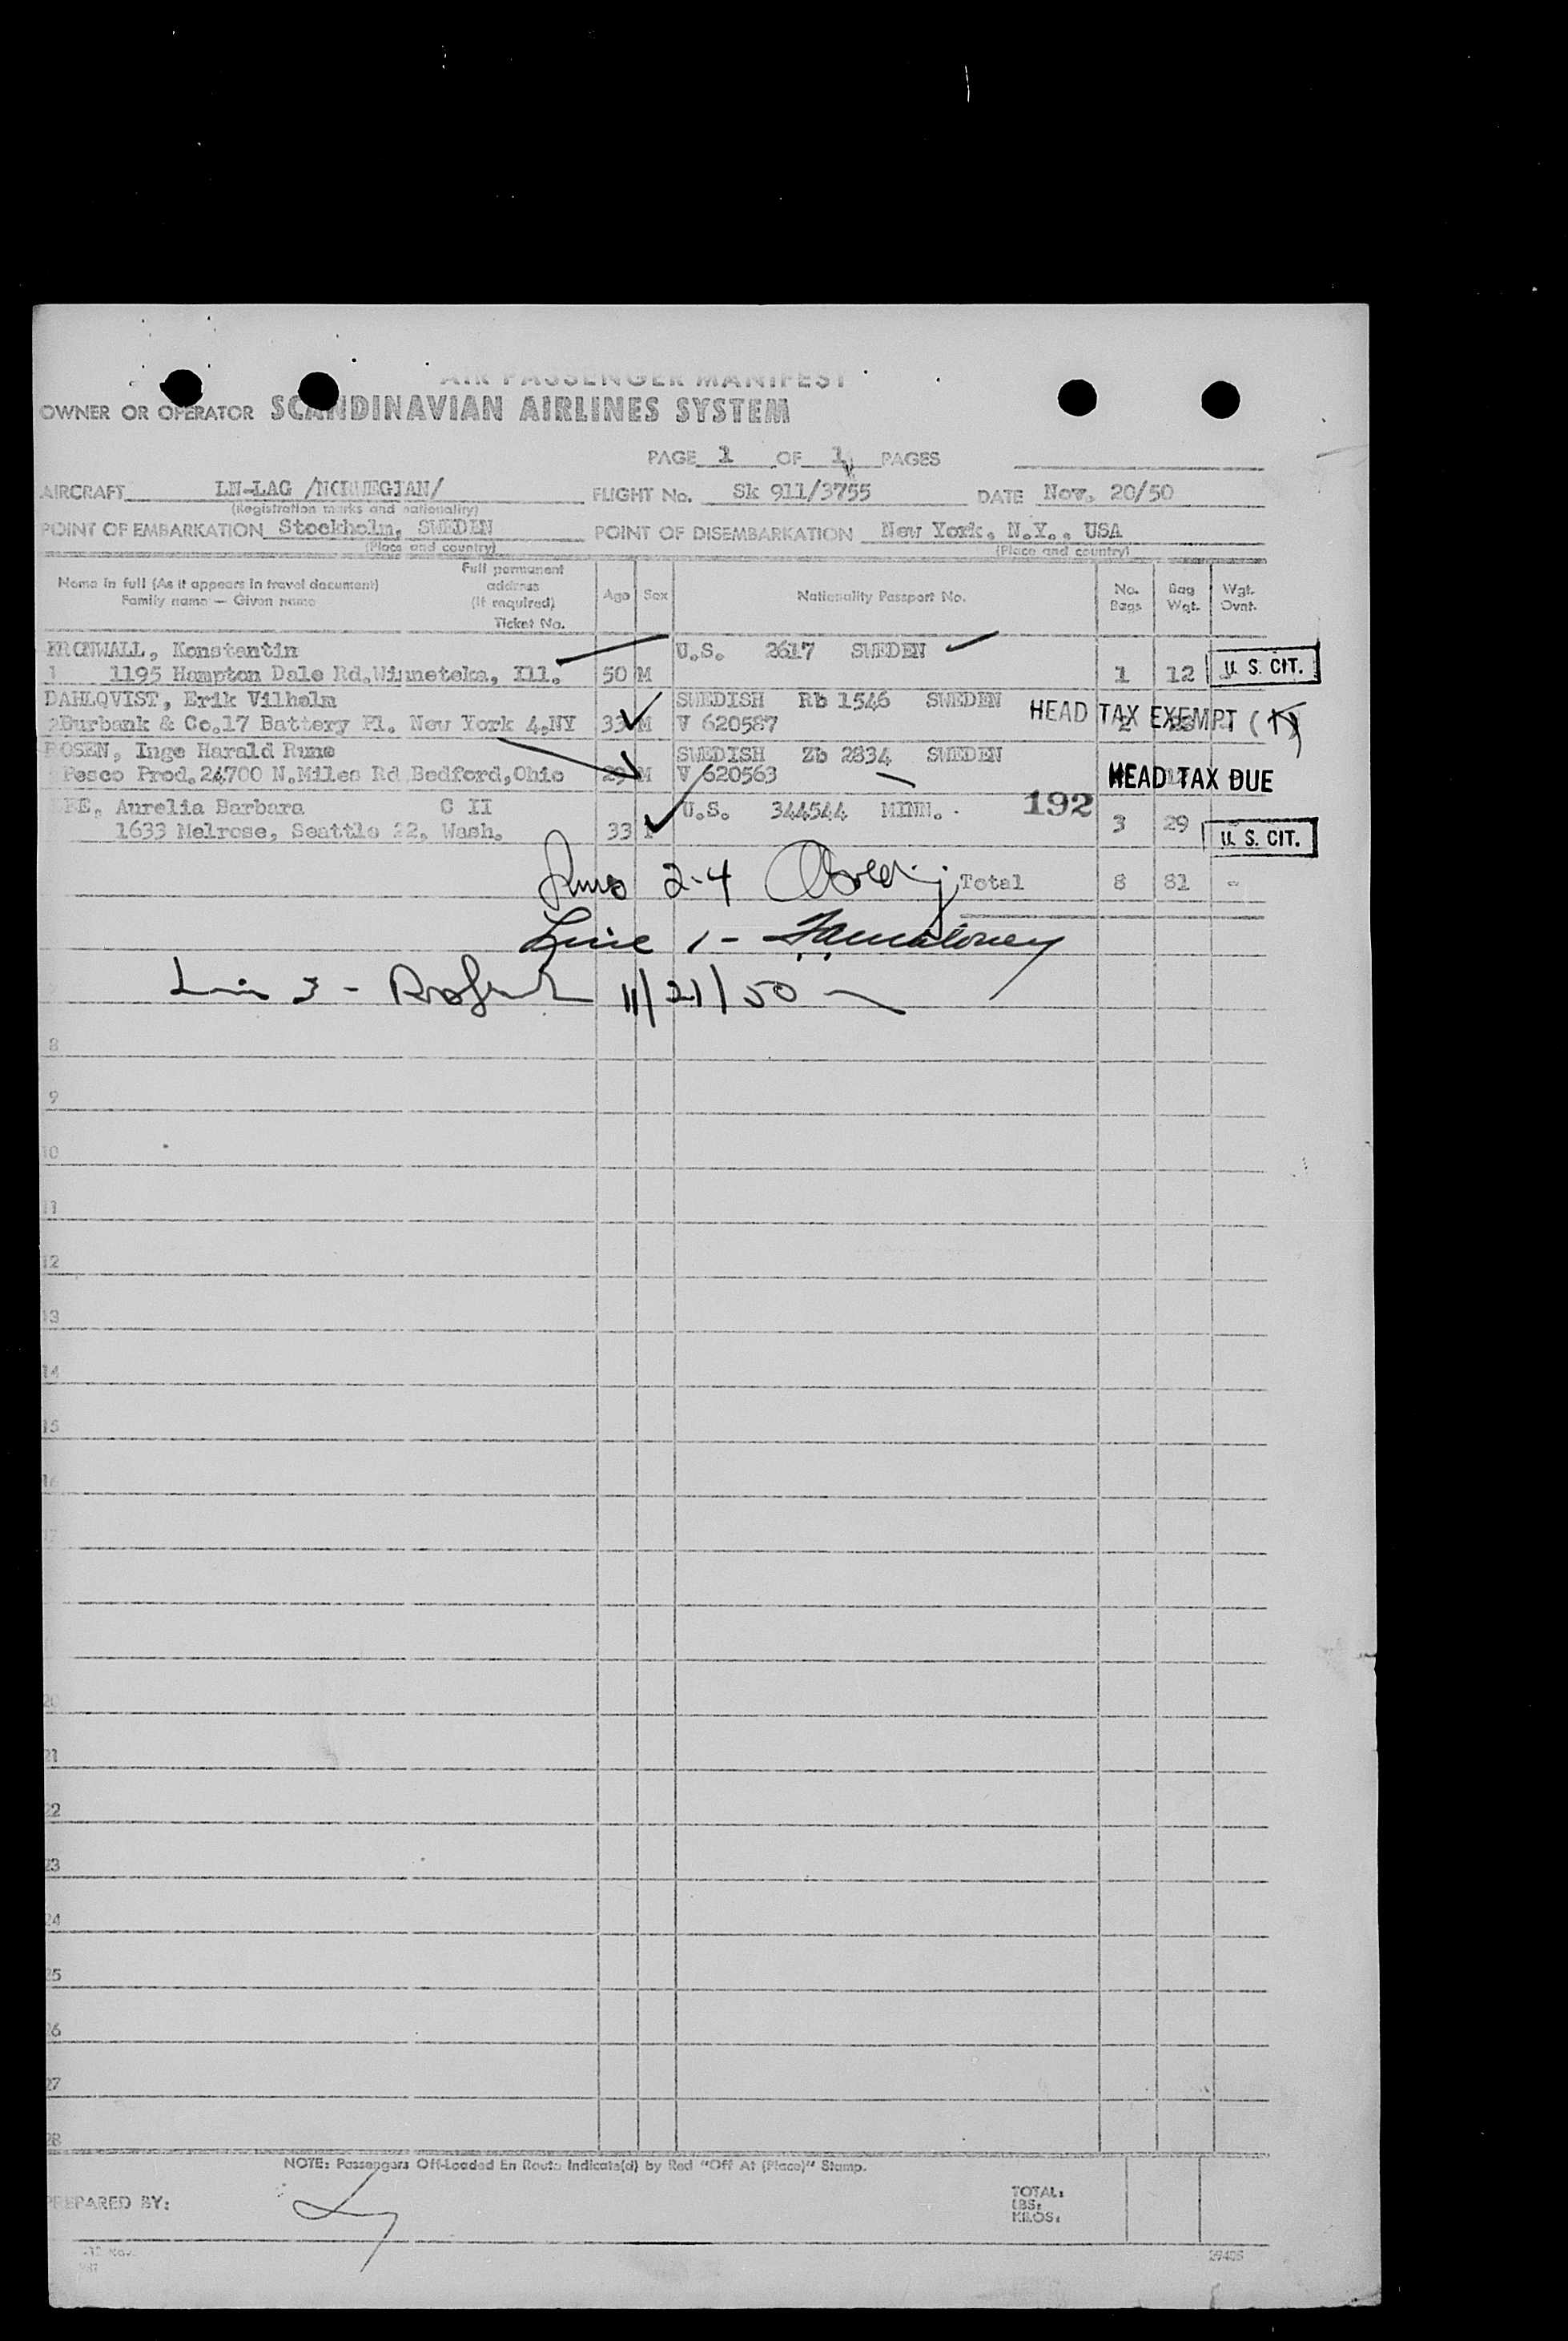 AIR PASSENGER MANIFEST
OWNER OR OPERATOR SCANDINAVIAN AIRLINES SYSTEM
PAGE 1 OF 1 PAGES
AIRCRAFT LN-LAG /NORWEGIAN/ FLIGHT No. Sk 911/3755 DATE Nov. 20/50
(Registration marks and nationality)
POINT OF EMBARKATION Stockholm, SWEDEN POINT OF DISEMBARKATION New York, N.Y., USA
(Place and country) (Place and country)
Name in full (As it appears in travel document) Family name — Given name Full permanent address (If required) Ticket No. Age Sex Nationality Passport No. No. Bags Bag Wgt. Wgt. Ovnt.
KRONWALL, Konstantin U.S. 2617 SWEDEN
1 1195 Hampton Dale Rd.Winneteka, Ill. 50 M 1 12 U. S. CIT.
DAHLQVIST, Erik Vilhelm SWEDISH Rb 1546 SWEDEN HEAD TAX EXEMPT
2 Burbank & Co.17 Battery Pl. New York 4,NY 33 M V 620587
ROSEN, Inge Harald Rune SWEDISH Zb 2834 SWEDEN
Pesco Prod.24700 N.Miles Rd Bedford,Ohio 29 M V 620563 HEAD TAX DUE
Aurelia Barbara C II U.S. 344544 MINN. 192
1633 Melrose, Seattle 22, Wash. 33 F 3 29 U. S. CIT.
2-4 Total 8 81 -
Line 1 -
Line 3 - 11/21/50
8
9
10
11
12
13
14
15
16
17
20
21
22
23
24
25
26
27
28
NOTE: Passengers Off-Loaded En Route Indicate(d) by Red "Off At (Place)" Stamp.
PREPARED BY: TOTAL:
LBS:
KILOS:
29405